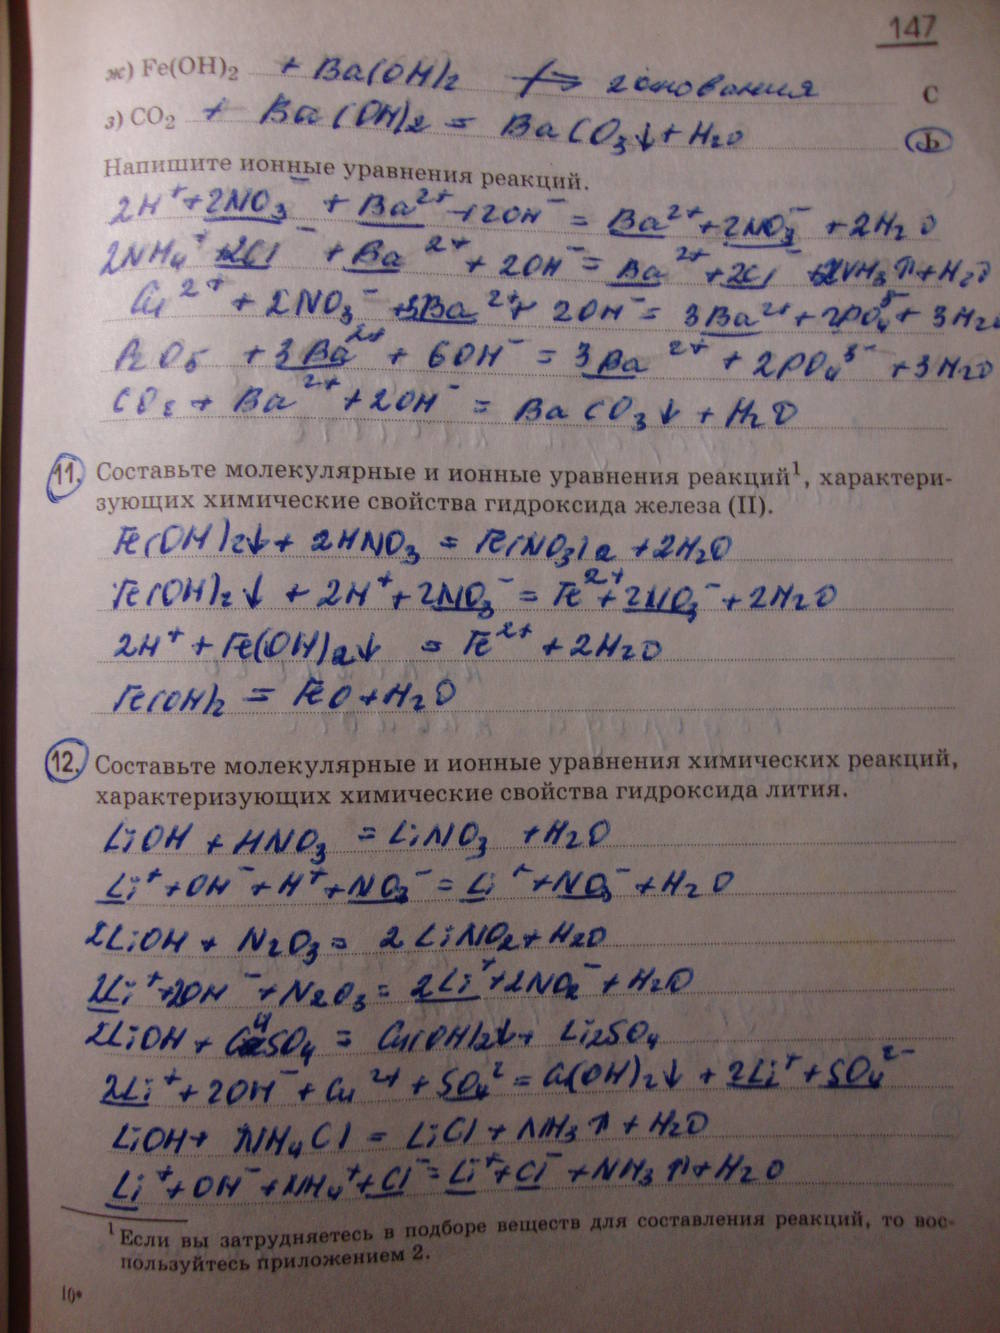 147
ж) Fe(OH)₂ + Ba(OH)₂ ⇸ 2 основания
С
з) CO₂ + Ba(OH)₂ = BaCO₃↓ + H₂O
Ь
Напишите ионные уравнения реакций.
2H⁺ + 2NO₃⁻ + Ba²⁺ + 2OH⁻ = Ba²⁺ + 2NO₃⁻ + 2H₂O
2NH₄⁺ + 2Cl⁻ + Ba²⁺ + 2OH⁻ = Ba²⁺ + 2Cl⁻ + 2NH₃↑ + H₂O
Cu²⁺ + 2NO₃⁻ + 3Ba²⁺ + 2OH⁻ = 3Ba²⁺ + 2PO₄ + 3H₂O
P₂O₅ + 3Ba²⁺ + 6OH⁻ = 3Ba²⁺ + 2PO₄³⁻ + 3H₂O
CO₂ + Ba²⁺ + 2OH⁻ = BaCO₃↓ + H₂O
11. Составьте молекулярные и ионные уравнения реакций¹, характери-
зующих химические свойства гидроксида железа (II).
Fe(OH)₂↓ + 2HNO₃ = Fe(NO₃)₂ + 2H₂O
Fe(OH)₂↓ + 2H⁺ + 2NO₃⁻ = Fe²⁺ + 2NO₃⁻ + 2H₂O
2H⁺ + Fe(OH)₂↓ = Fe²⁺ + 2H₂O
Fe(OH)₂ = FeO + H₂O
12. Составьте молекулярные и ионные уравнения химических реакций,
характеризующих химические свойства гидроксида лития.
LiOH + HNO₃ = LiNO₃ + H₂O
Li⁺ + OH⁻ + H⁺ + NO₃⁻ = Li⁺ + NO₃⁻ + H₂O
2LiOH + N₂O₃ = 2LiNO₂ + H₂O
2Li⁺ + 2OH⁻ + N₂O₃ = 2Li⁺ + 2NO₂⁻ + H₂O
2LiOH + CuSO₄ = Cu(OH)₂↓ + Li₂SO₄
2Li⁺ + 2OH⁻ + Cu²⁺ + SO₄² = Cu(OH)₂↓ + 2Li⁺ + SO₄²⁻
LiOH + NH₄Cl = LiCl + NH₃↑ + H₂O
Li⁺ + OH⁻ + NH₄⁺ + Cl⁻ = Li⁺ + Cl⁻ + NH₃↑ + H₂O
¹ Если вы затрудняетесь в подборе веществ для составления реакций, то вос-
пользуйтесь приложением 2.
10*